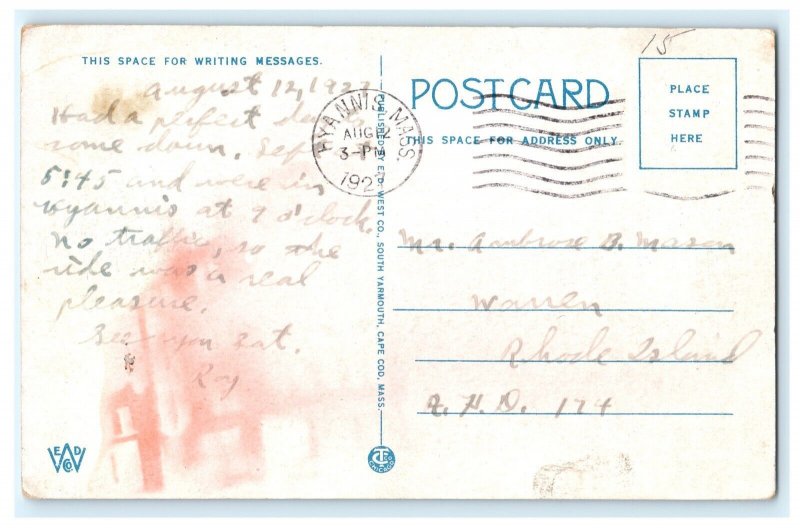 THIS SPACE FOR WRITING MESSAGES.
August 12, 1927
Had a perfect
some down.
5:45 and were in
Hyannis at 9 o'clock.
No traffic, so the
ride was a real
pleasure.
See you Sat.
Roy
E D
W Co
PUBLISHED BY E.D. WEST CO., SOUTH YARMOUTH, CAPE COD, MASS.
HYANNIS MASS
AUG 12
3-PM
1927
CT
CHICAGO
POST CARD
THIS SPACE FOR ADDRESS ONLY.
15
PLACE
STAMP
HERE
Mr. Ambrose B. Mason
Warren
Rhode Island
R. F. D. 174